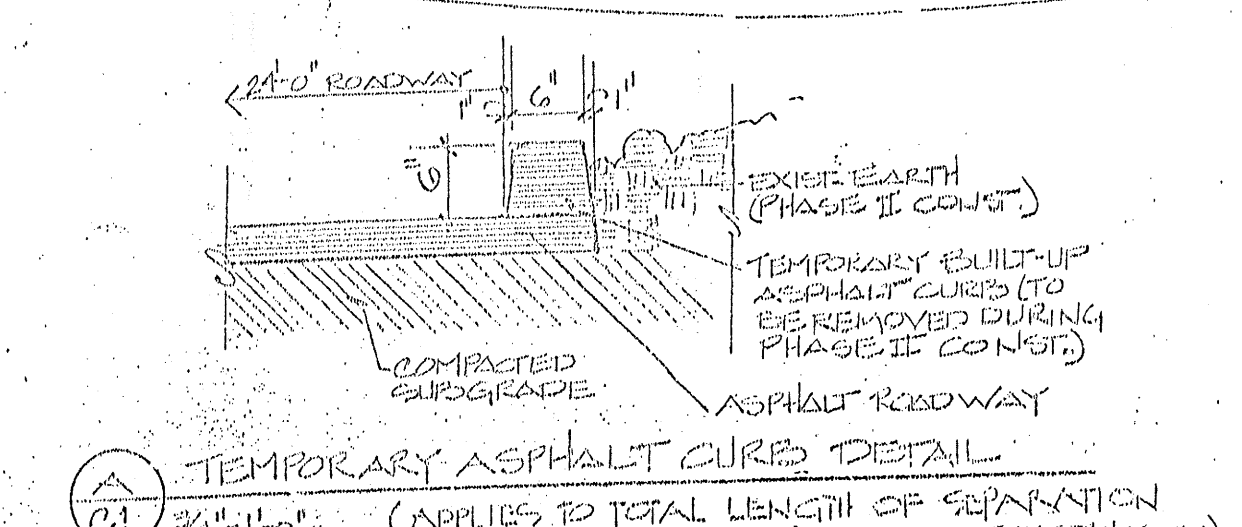 24'-0" ROADWAY
1" 6" 1"
6"
EXIST. EARTH
(PHASE II CONST.)
TEMPORARY BUILT-UP
ASPHALT CURB (TO
BE REMOVED DURING
PHASE II CONST.)
COMPACTED
SUBGRADE
ASPHALT ROADWAY
A
C.1
TEMPORARY ASPHALT CURB DETAIL
3/4"=1'-0"
(APPLIES TO TOTAL LENGTH OF SEPARATION